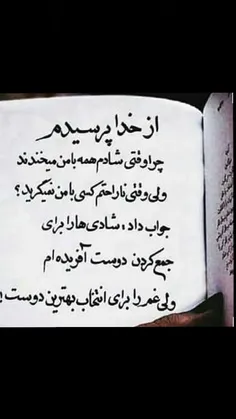 از خدا پرسیدم
چرا وقتی شادم همه با من میخندند
ولی وقتی ناراحتم کسی با من نمیگرید؟
جواب داد: شادی ها را برای
جمع کردن دوست آفریده ام
ولی غم را برای انتخاب بهترین دوست!